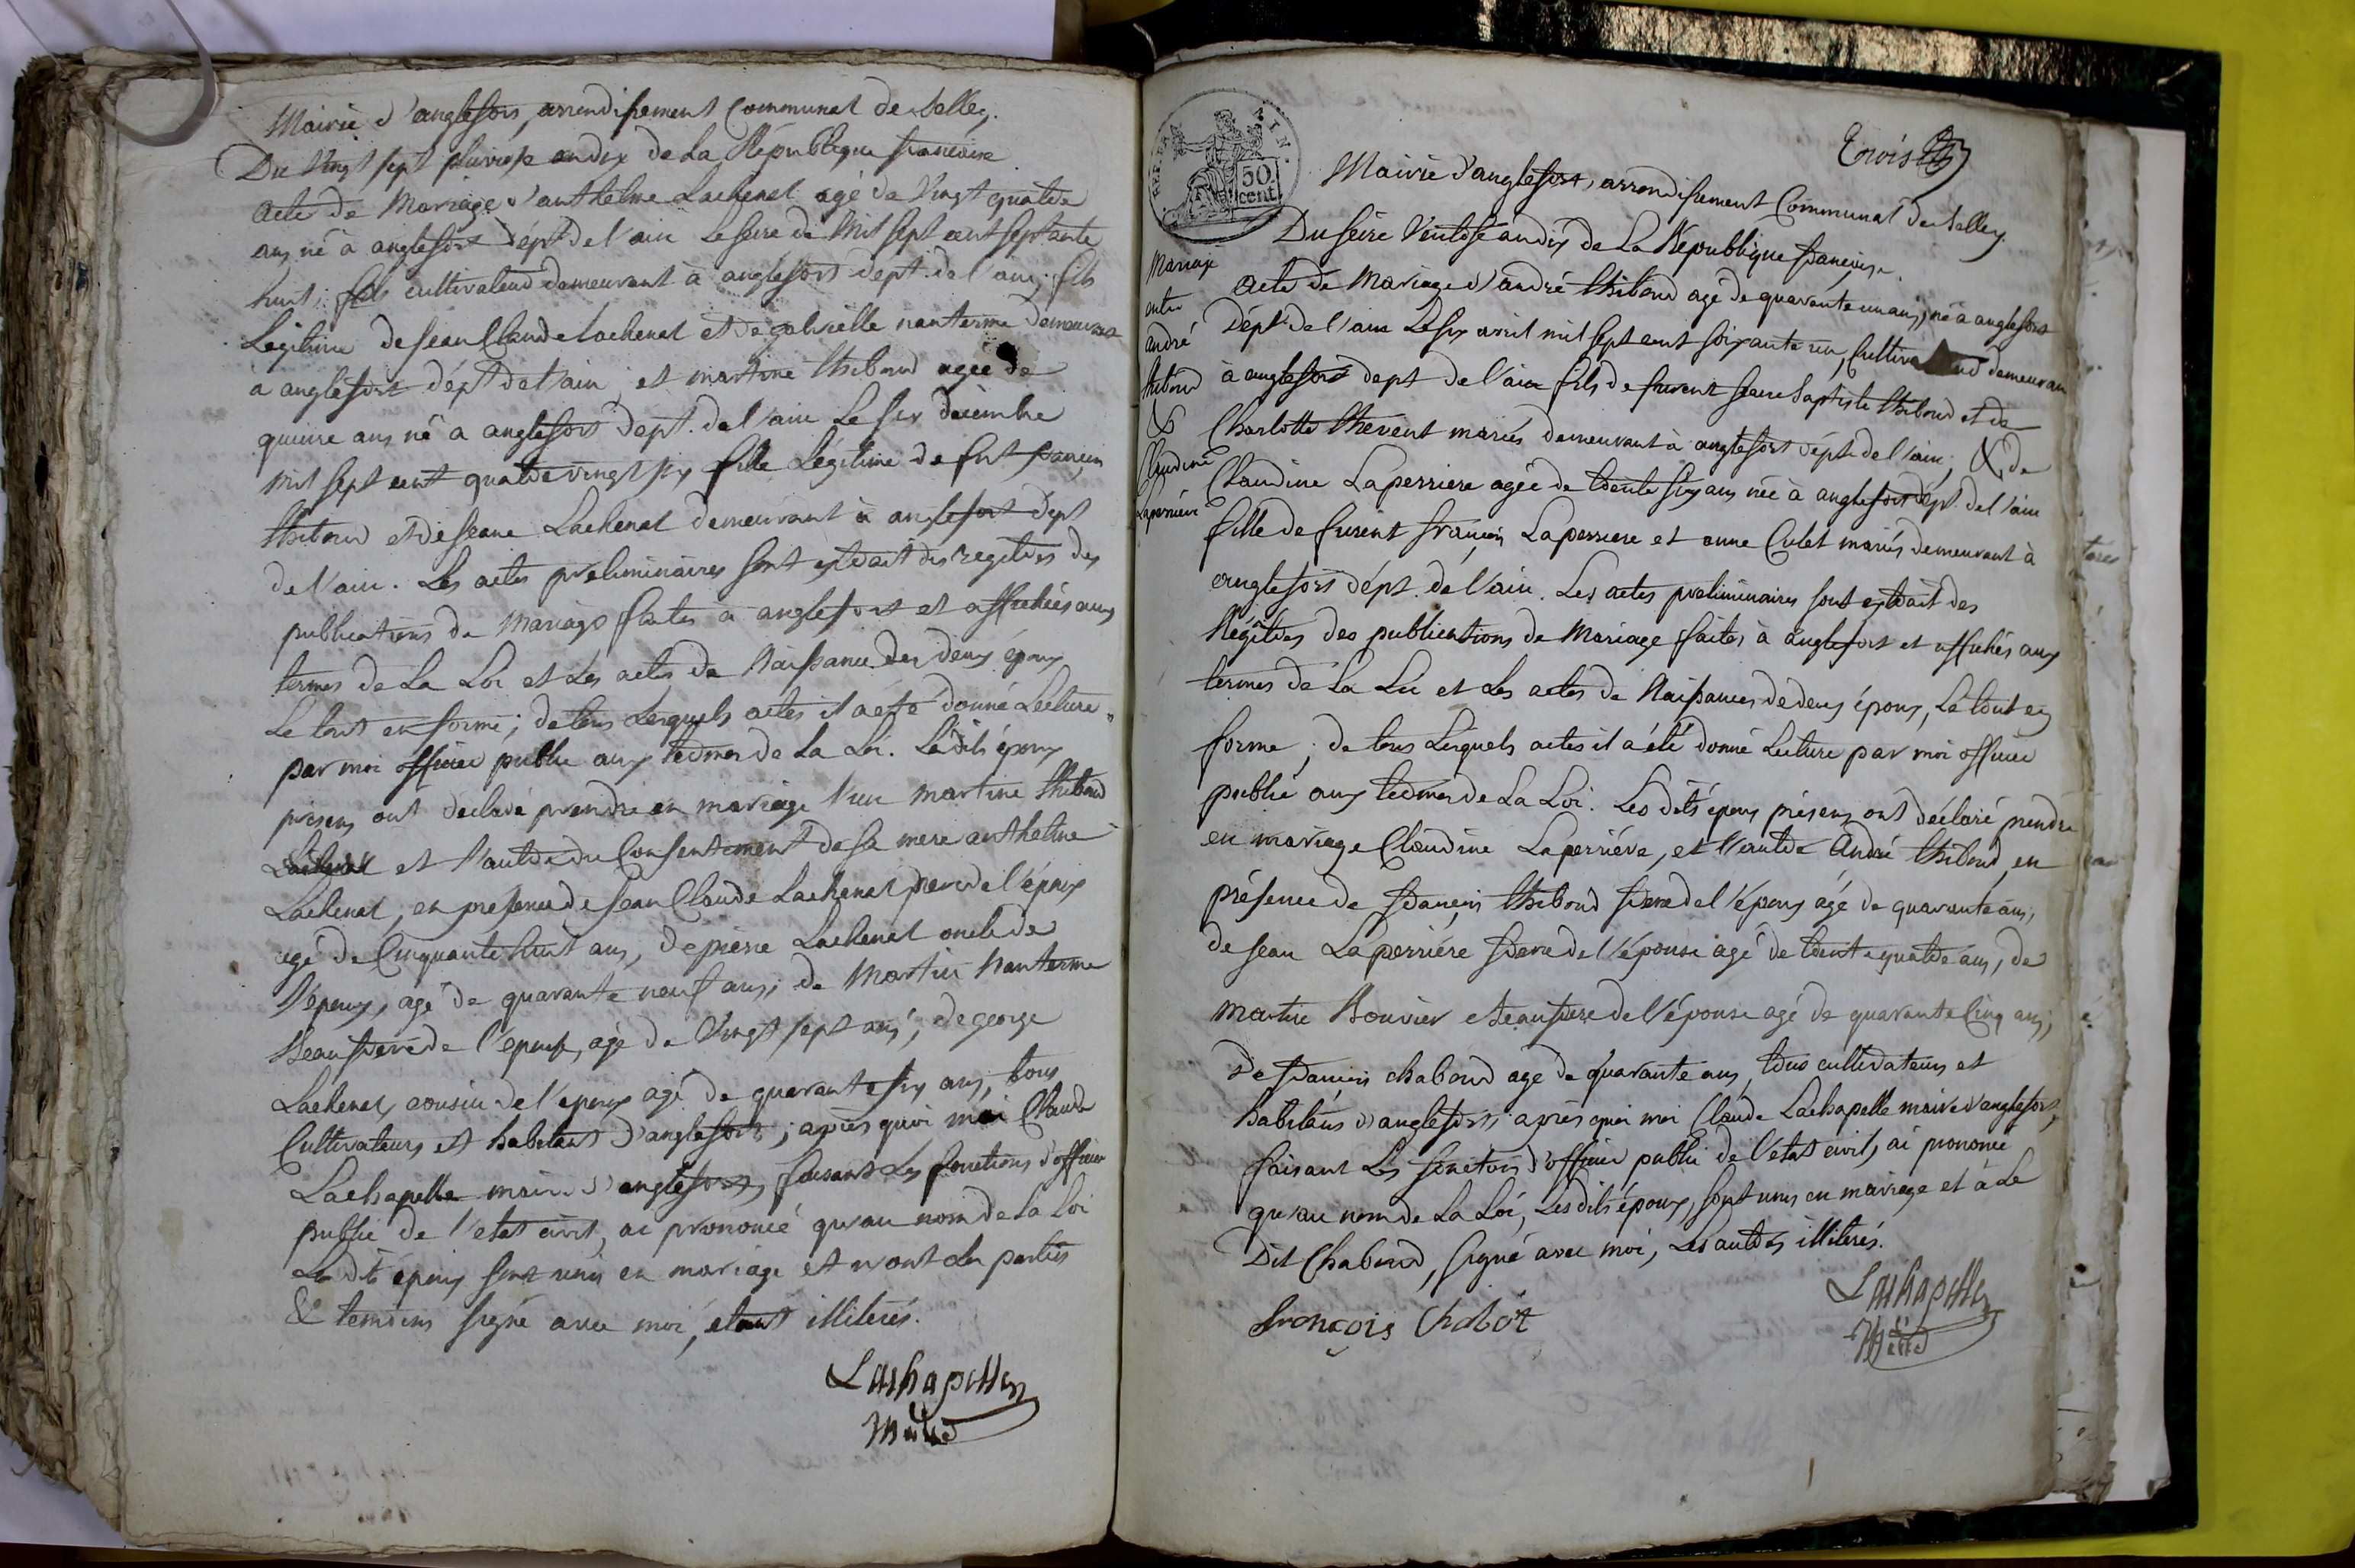 Mairie d'anglefort, arrondissement Communal de Belley.
Du Vingt sept pluviose an dix de La République francaise
Acte de Mariage d'anthelme Lachenal agé de Vingt quatre
ans né à anglefort dépt de l'ain le seize de Mil Sept cent septante
huit; fils cultivateur demeurant à anglefort dept. de l'ain; fils
Légitime de Jean Claude Lachenal et de gabrielle nanterme demeurant
à anglefort dépt de l'ain; et martine thiboud agée de
quinze ans né a anglefort dept. de l'ain Le six decembre
mil sept cent quatre vingt six fille Légitime de fut francois
thiboud et de Jeane Lachenal demeurant à anglefort dept
de l'ain. Les actes préliminaires sont extrait des registres des
publications de Mariage faites à anglefort et affichées aux
termes de La Loi et Les actes de Naissance des deux époux
Le tout en forme; de tous Lesquels actes il a été donné Lecture
par moi officier public aux termes de La Loi. Les dits époux
présens ont déclaré prendre en mariage l'un martine thiboud
et l'autre du Consentement de sa mere anthelme
Lachenal, en présence de Jean Claude Lachenal pere de l'époux
agé de Cinquante huit ans, de pierre Lachenal oncle de
l'époux, agé de quarante neuf ans; de Martin Nanterme
Beaufrere de l'époux, agé de Vingt sept ans; de george
Lachenal cousin de l'epoux agé de quarante six ans, tous
Cultivateurs et habitans d'anglefort; après quoi moi Claude
Lachapelle maire d'anglefort, faisant Les fonctions d'officier
public de l'etat civil, ai prononcé qu'au nom de La Loi
Les dits époux sont unis en mariage et n'ont Les parties
& temoins signé avec moi, étant illiterés.
Lachapelle
Maire
REP. FRA
50
cent
Trois
Mairie d'anglefort, arrondissement Communal de Belley.
Du seize Ventose an dix de La République francaise.
Mariage
entre
andré
thiboud
&
Claudine
Laperrière
Acte de Mariage d'andré thiboud agé de quarante un ans, né à anglefort
Dépt. de l'ain Le six avril mil sept cent soixante un, Cultivateur demeurant
à anglefort dept de l'ain fils de furent Jean Baptiste thiboud et de
Charlotte thevent mariés demeurant à anglefort dépt. de l'ain; & de
Claudine Laperriere agée de trente six ans née à anglefort dépt. de l'ain
fille de furent francois Laperriere et anne Culet mariés demeurant à
anglefort dépt. de l'ain. Les actes préliminaires sont extrait des
Régitres des publications de Mariage faites à anglefort et affichés aux
termes de La Loi et Les actes de Naissances de deux époux, Le tout en
forme; de tous Lesquels actes il a été donné Lecture par moi officier
public aux termes de La Loi. Les dits époux présens ont déclaré prendre
en mariage Claudine Laperriére, et l'autre André thiboud, en
présence de francois thiboud frere de l'époux agé de quarante ans,
de Jean Laperriére frere de l'épouse agé de trente quatre ans, de
Martin Bouvier Beaufrere de l'épouse agé de quarante Cinq ans,
De francois chaboud agé de quarante ans, tous cultivateurs et
habitans d'anglefort; après quoi moi Claude Lachapelle maire d'anglefort,
faisant Les fonctions d'officier public de l'etat civil, ai prononcé
qu'au nom de La Loi, Les dits époux, sont unis en mariage et à Le
Dit Chaboud, signé avec moi, Les autres illiterés.
françois Chabot
Lachapelle
Maire